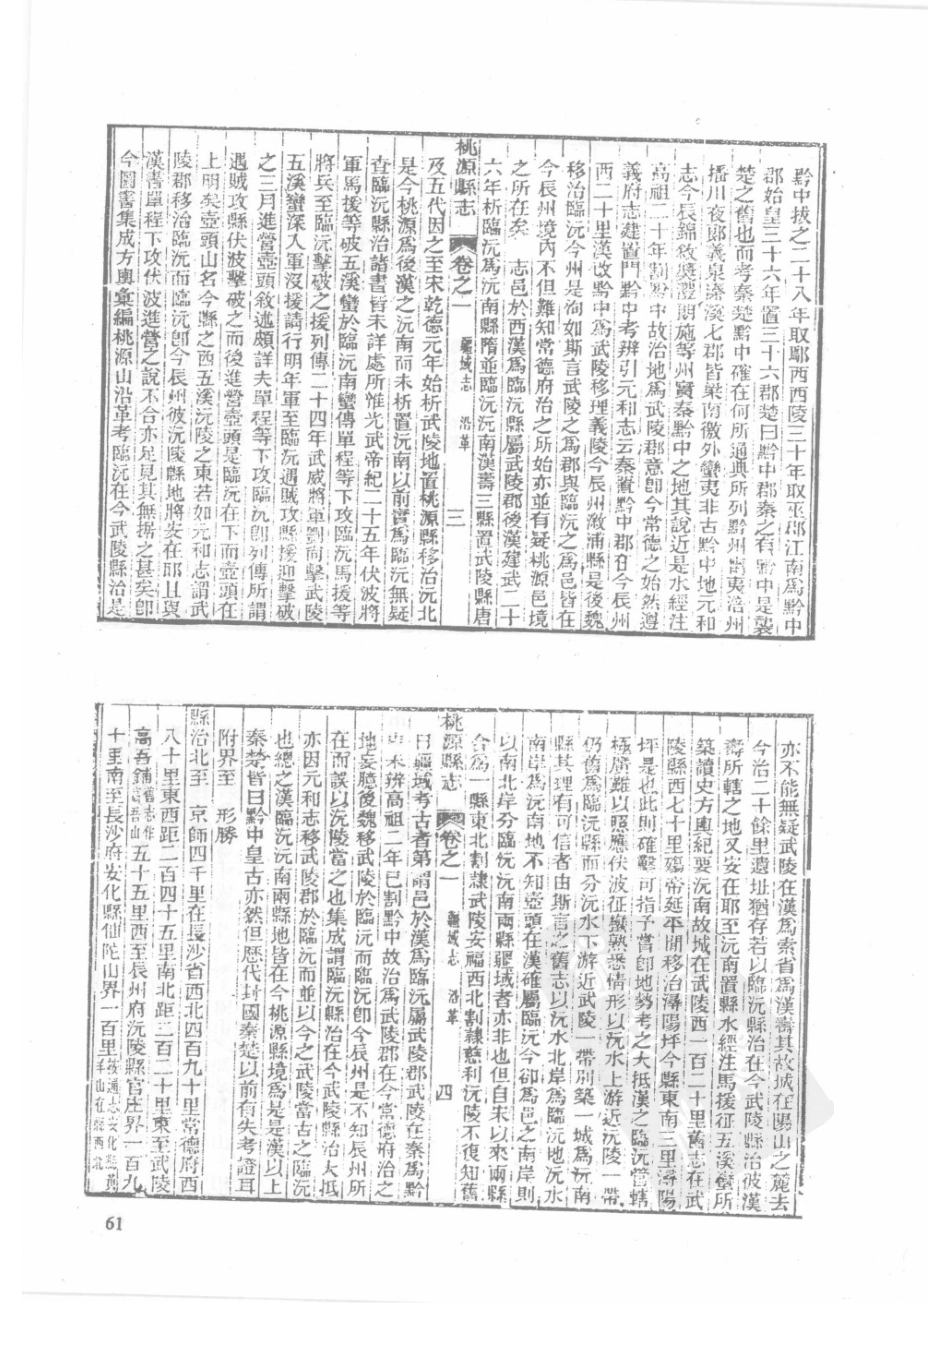 黔中拔之二十八年取鄢西西陵三十年取巫郡江南爲黔中
郡始皇三十六年置三十六郡楚曰黔中郡秦之有黔中是襲
楚之舊也而考秦楚黔中確在何所通典所列黔州 夷涪州
播川夜郎義泉溱溪七郡皆梁南徼外蠻夷非古黔中地元和
志今辰錦敘獎澧朗施等州實秦黔中之地其說近是水經注
高祖二十年割黔中故治地爲武陵郡意卽今常德之始然遵
義府志建置門黔中考辨引元和志云秦黔中郡在今辰州
西二十里漢改黔中爲武陵移理義陵今辰州漵浦縣是後魏
移治臨沅今州是洵如斯言武陵之爲郡與臨沅之爲邑皆在
今辰州境內不但難知常德府治之所始亦並有疑桃源邑境
之所在矣 志邑於西漢爲臨沅縣屬武陵郡後漢建武二十
六年析臨沅爲沅南縣隋並臨沅沅南漢壽三縣置武陵縣唐
桃源縣志 卷之一 疆域志 沿革 三
及五代因之至宋乾德元年始析武陵地置桃源縣移治沅北
是今桃源爲後漢之沅南而未析置沅南以前實爲臨沅無疑
查臨沅縣治諸書皆未詳處所惟光武帝紀二十五年伏波將
軍馬援等破五溪蠻於臨沅南蠻傳單程等下攻臨沅馬援等
將兵至臨沅擊破之援列傳二十四年武威將軍劉尙擊武陵
五溪蠻深入軍沒援請行明年軍至臨沅遇賊攻縣援迎擊破
之三月進營壺頭敘述頗詳夫單程等下攻臨沅卽列傳所謂
遇賊攻縣伏波擊破之而後進營壺頭是臨沅在下而壺頭在
上明矣壺頭山名今縣之西五溪沅陵之東若如元和志謂武
陵郡移治臨沅而臨沅卽今辰州彼沅陵縣地將安在耶且與
漢書單程下攻伏波進營之說不合亦足見其無據之甚矣卽
今圖書集成方輿彙編桃源山沿革考臨沅在今武陵縣治是
亦不能無疑武陵在漢爲索省爲漢壽其故城在陽山之麓去
今治二十餘里遺址猶存若以臨沅縣治在今武陵縣治彼漢
壽所轄之地又安在耶至沅南置縣水經注馬援征五溪蠻所
築讀史方輿紀要沅南故城在武陵西一百二十里舊志在武
陵縣西七十里殤帝延平間移治潯陽坪今縣東南三里潯陽
坪是也此則確鑿可指予嘗卽地勢考之大抵漢之臨沅管轄
極廣難以照應伏波征蠻熟悉情形以沅水上游近沅陵一帶
仍舊爲臨沅縣而分沅水下游近武陵一帶別築一城爲沅南
縣其理有可信者由斯言之舊志以沅水北岸爲臨沅地沅水
南岸爲沅南地不知壺頭在漢確屬臨沅今卻爲邑之南岸則
以南北岸分臨沅沅南兩縣疆域者亦非也但自宋以來兩縣
合爲一縣東北割隸武陵安福西北割隸慈利沅陵不復知舊
桃源縣志 卷之一 疆域志 沿革 四
日疆域考古者第謂邑於漢爲臨沅屬武陵郡武陵在秦爲黔
中未辨高祖二年已割黔中故治爲武陵郡在今常德府治之
地妄臆後魏移武陵於臨沅而臨沅卽今辰州是不知辰州所
在而誤以沅陵當之也集成謂臨沅縣治在今武陵縣治大抵
亦因元和志移武陵郡於臨沅而並以今之武陵當古之臨沅
也總之漢臨沅沅南兩縣地皆在今桃源縣境爲是是漢以上
秦楚皆曰黔中皇古亦然但歷代封國秦楚以前有失考證耳
附界至 形勝
縣治北至 京師四千里在長沙省西北四百九十里常德府西
八十里東西距二百四十五里南北距三百二十里東至武陵
高吾鋪舊志作高吾山五十五里西至辰州府沅陵縣官庄界一百九
十里南至長沙府安化縣仙陀山界一百里
61